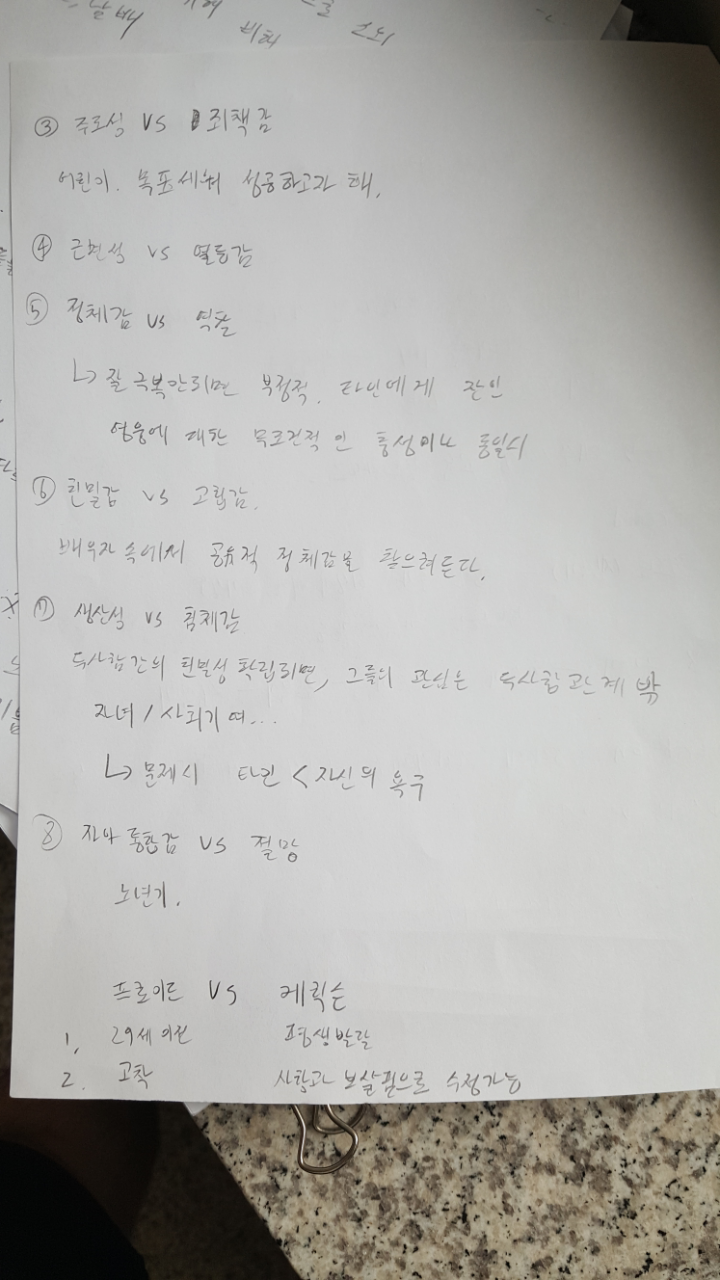 비해
③ 주도성 vs 죄책감
어린이. 목표세워 성공하고자 해.
④ 근면성 vs 열등감
⑤ 정체감 vs 역할
↳ 잘 극복안되면 부정적. 타인에게 잔인
영웅에 대한 무조건적인 충성이나 동일시
⑥ 친밀감 vs 고립감.
배우자 속에서 공유적 정체감을 찾으려든다.
⑦ 생산성 vs 침체감
두사람간의 친밀성 확립되면, 그들의 관심은 두사람관계 밖
자녀 / 사회기여...
↳ 문제시 타인 < 자신의 욕구
⑧ 자아 통합감 vs 절망
노년기.
프로이드 vs 에릭슨
1, 평생발달
2. 고착 사랑과 보살핌으로 수정가능